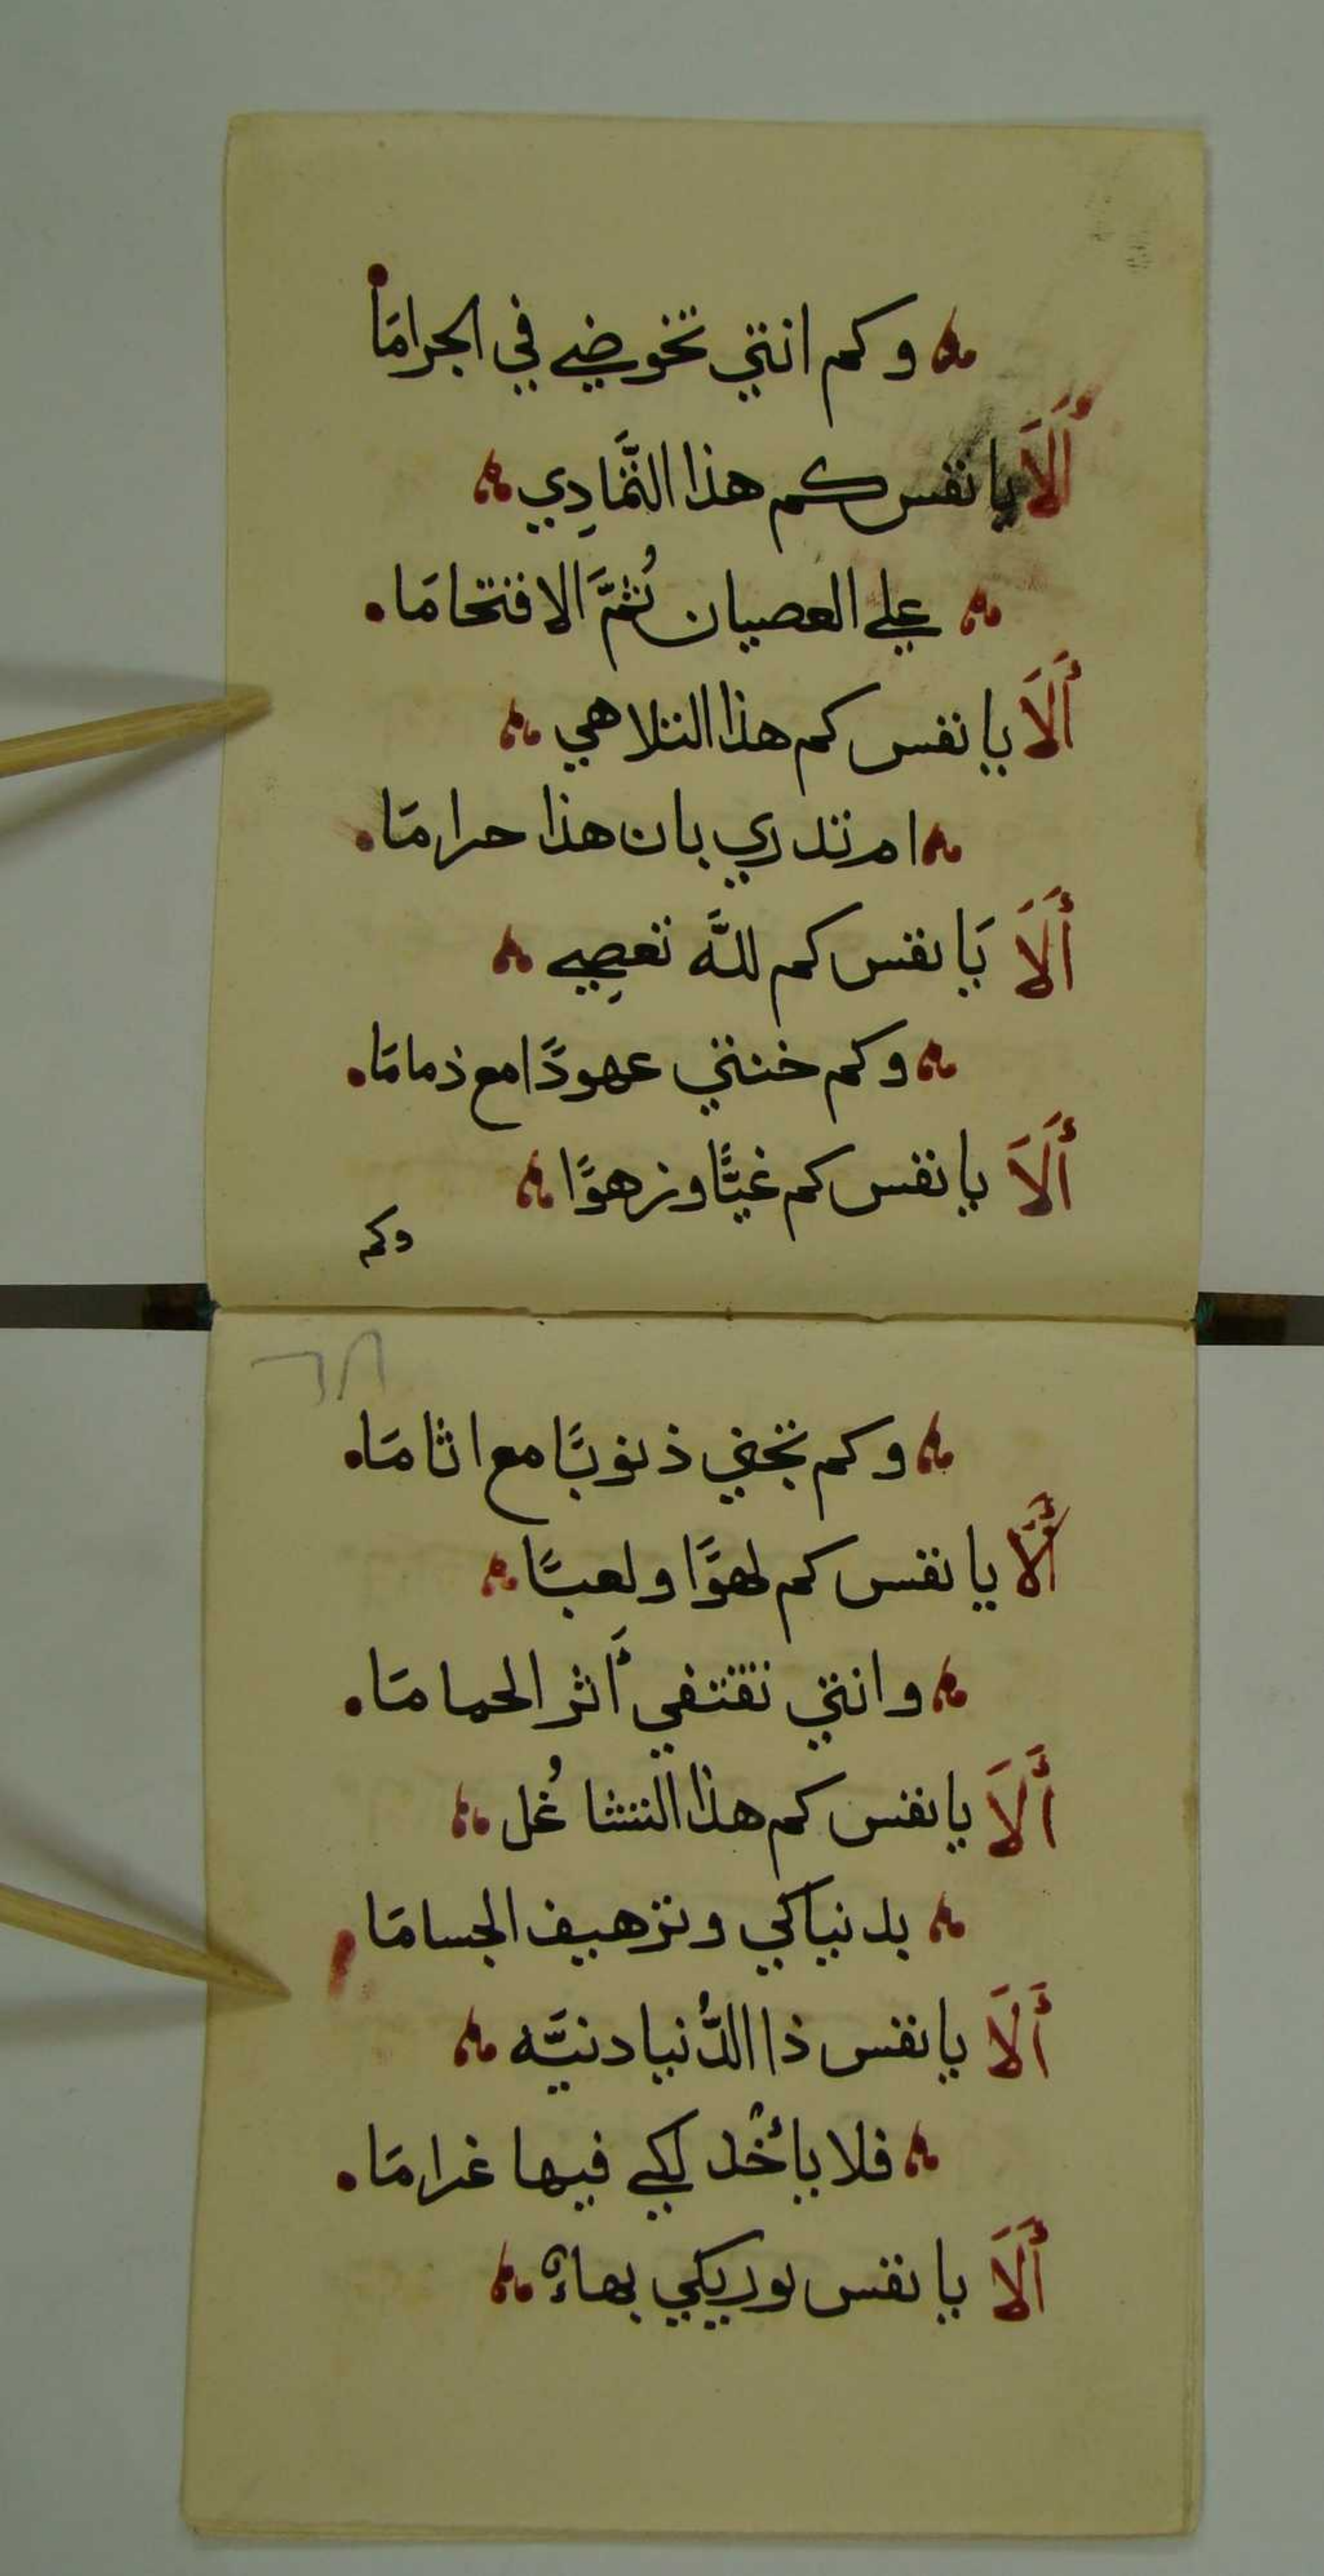 وكم انتي تخوضي في الجرامَا
أَلَا يا نفس كم هذا التَّمَادِي
علي العصيان ثُمَّ الافتحامَا
أَلَا يا نفس كم هذا التلاهي
ام تدري بان هذا حرامَا
أَلَا يَا نفس كم للَّه تعصِي
وكم خنتي عهودًا مع ذمامَا
أَلَا يا نفس كم غيًّا وزهوًا
وكم
٦٨
وكم تجني ذنوبًا مع اثامَا
أَلَا يا نفس كم لهوًا ولعبًا
وانتي تقتفي أَثر الحمامَا
أَلَا يا نفس كم هذا التشاغُل
بدنياكي وتزهيف الجسامَا
أَلَا يا نفس ذا الدُّنيا دنيَّه
فلا يأخُذ لكي فيها غرامَا
أَلَا يا نفس يوريكي بهاءً